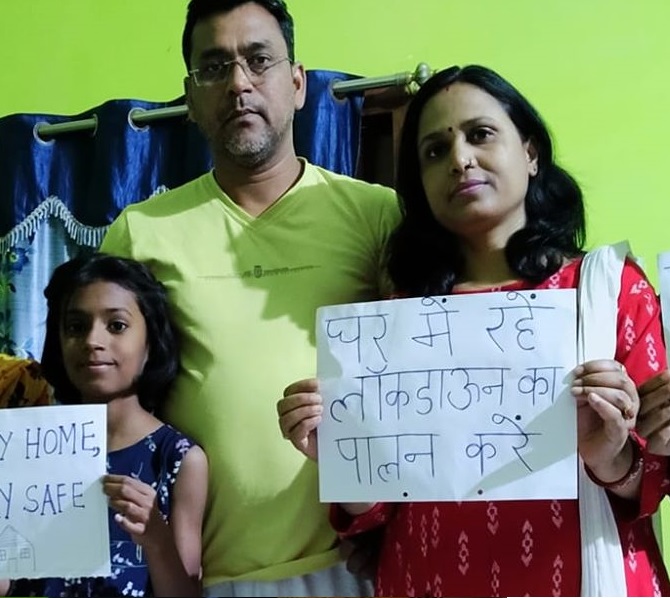 Y HOME,
Y SAFE
घर में रहें
लॉकडाऊन का
पालन करें